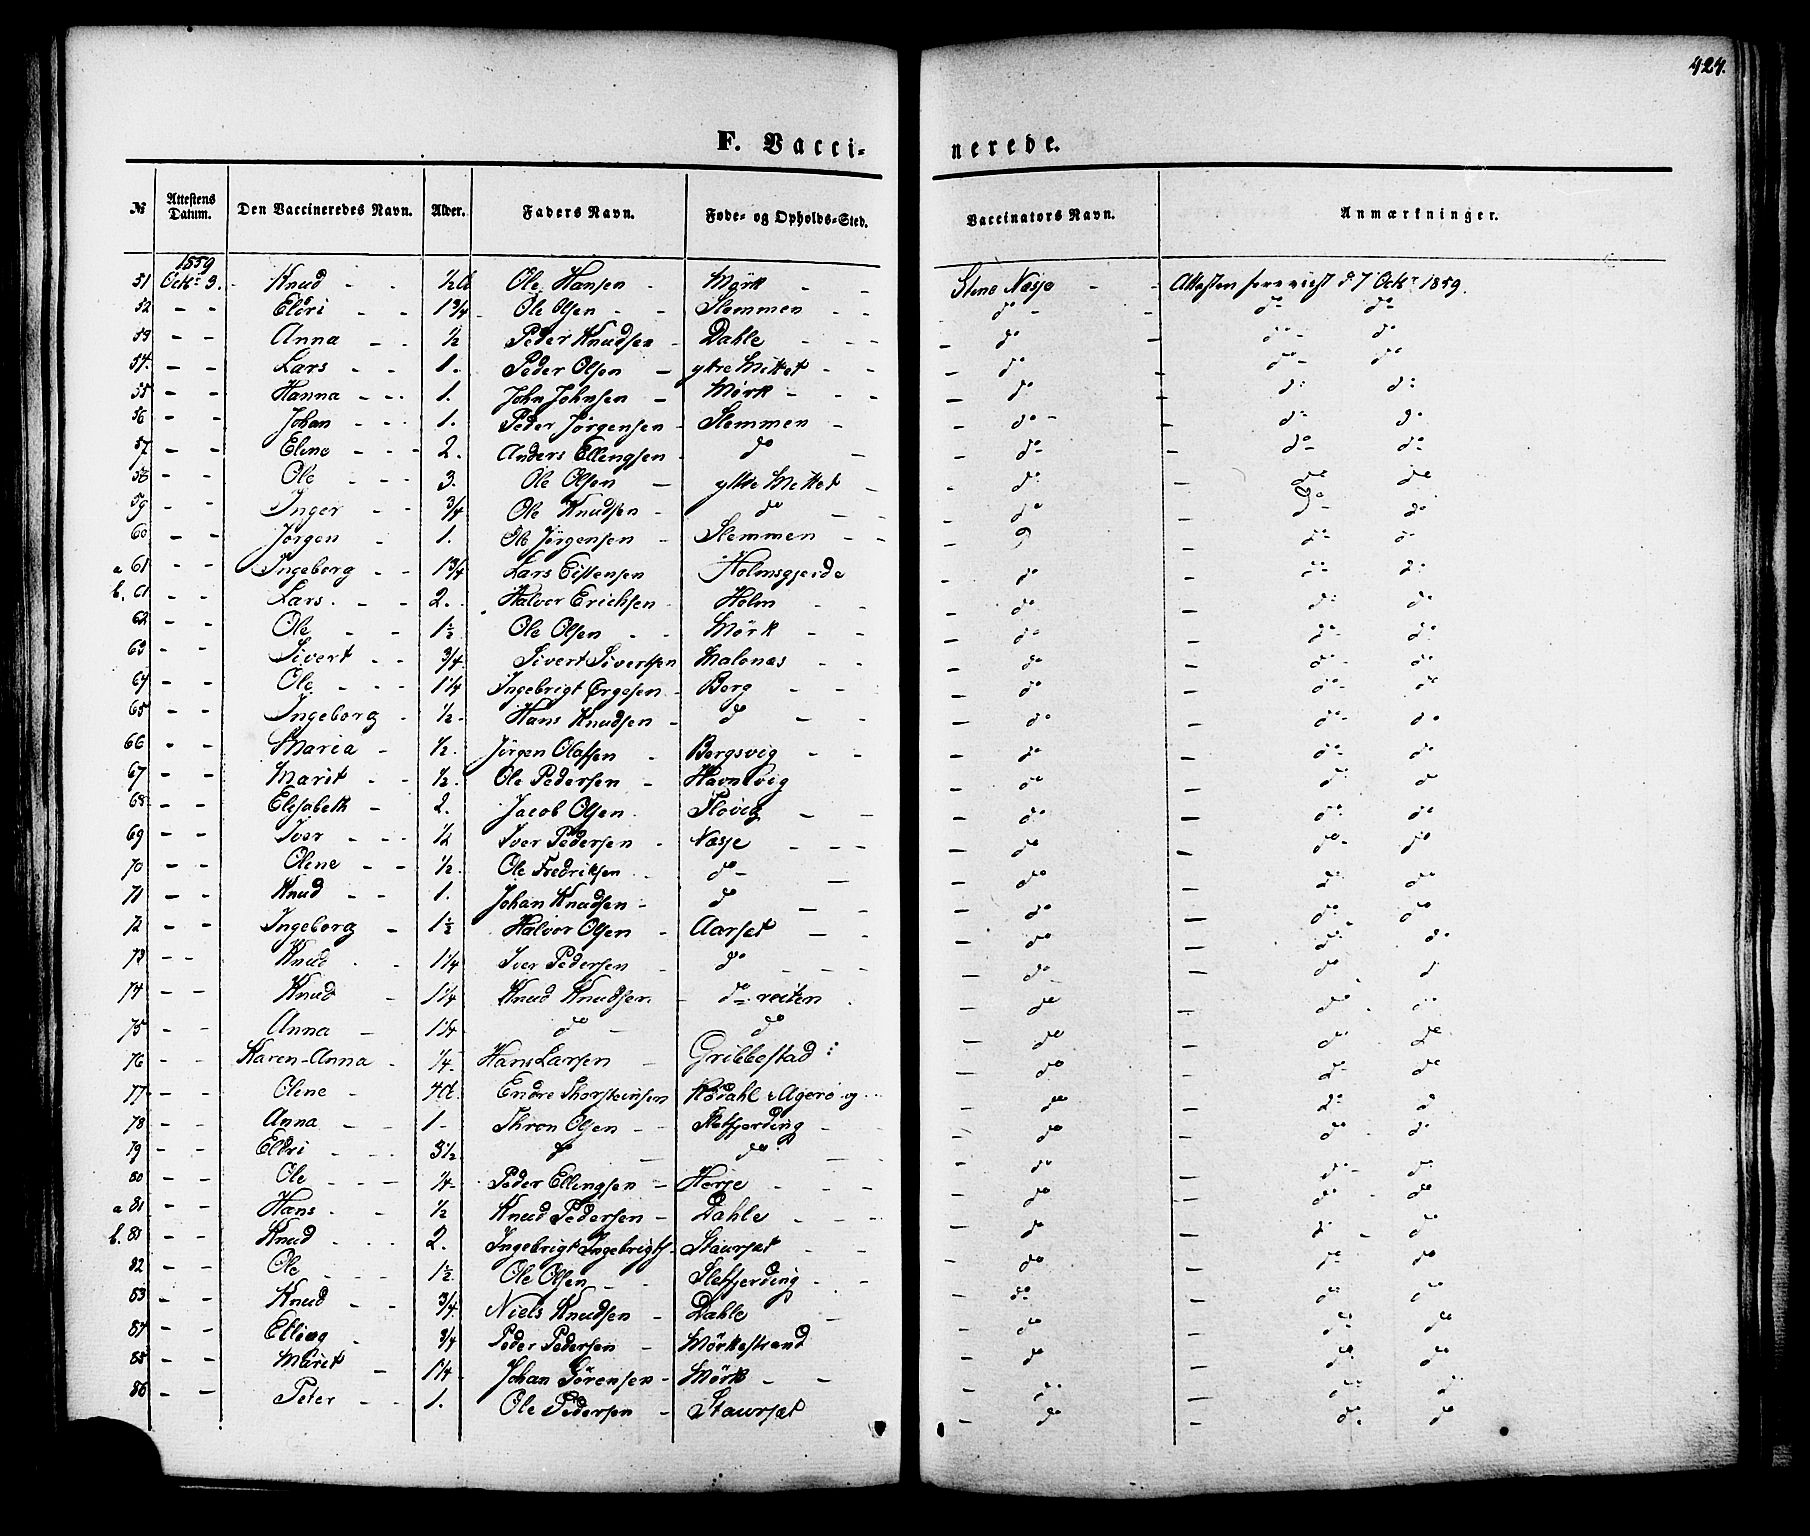 424.
F. Vaccinerede.
№ Attestens Datum. Den Vaccineredes Navn. Alder. Faders Navn. Føde- og Opholds-Sted. Vaccinators Navn. Anmærkninger.
1859
51 Octr 3. Knud - - ½ A Ole Hansen - Mörk - - Stene Næsje - - Attesten forevist d 7 Octr 1859.
52 - - Eldri - - 1¾ Ole Olsen - - Slemmen - - do - - do do
53 - - Anna - - ½ Peder Knudsen - Dahle - - - - do - do do
54. - - Lars - - 1. Peder Olsen - ytre Mittet - - - do do do
55 - - Hanna - - - 1. John Johnsen - Mörk - - - - do do do
56 - - Johan - - - 1. Peder Jörgensen - Slemmen - - do - - do do
57 - - Eline - - - 2. Anders Ellingsen do - - do - do do
58 - - Ole - - - 3. Ole Olsen - ytre Mittet - - do - do do
59 - - Inger - - ¾ Ole Knudsen - do - - - do - do do
60 - - Jörgen - 1. Ole Jörgensen - Slemmen - - - do - do do
a 61 - - Ingeborg - - 1¾ Lars Eistensen Holmsgjerde - do - do do
b. 61 - - Lars. - - 2. Halvor Erichsen Holm - - - do - do do
62 - - Ole - - 1½ Ole Olsen - - Mörk - - - do - do do
63 - - Sivert - - ¾ Sivert Sivertsen Malones - - - do - do do
64 - - Ole - - - 1¼ Ingebrigt Ergesen - Berg - - - do - do do
65 - - Ingeborg - ½ Hans Knudsen - do - - - do - do do
66 - - Maria - ½ Jörgen Olafsen - Bergsvig - - - do - do do
67 - - Marit - - ½. Ole Pedersen - Havnevig - do - do do
68 - - Elisabeth - 2. Jacob Olsen. Flovig - - - do - do do
69 - - Iver - - - ½ Iver Pedersen - Næsje - - - - do - do do
70 - - Olene - - ½. Ole Fredriksen do - - - do - do do
71 - - Knud - - 1. Johan Knudsen - do - - - do - do do
72 - - Ingeborg - 1½ Halvor Olsen - Aarset - - - do - do do
73 - - Knud - - 1¼ Iver Pedersen - do - - - - do - do do
74 - - Knud - 1¼ Knud Knudsen - do - reiten - do - do do
75 - - Anna - 1¼ do - do - do - do do
76 - - Karen-Anna - ¼ Hans Larsen - Gribbestad: - do - do do
77 - - Olene - 4 A Endre Thorsteinsen Rödahl i Agerö og - do - do do
78 - - Anna - - 1 - Thron Olsen - - Sletfjerding - - do - do do
79 - - Eldri - - - 3½ do - do - - do - do do
80 - - Ole - - - ¼ Peder Ellingsen - Horje - - - - do - do do
a 81 - - Hans - - ½ Knud Pedersen - Dahle - - - - do - do do
b. 81 - - Knud - - - 2. Ingebrigt Ingebrigts. Staurset - - - do - do do
82 - - Ole - - - 1½ Ole Olsen - - Sletfjerding - - - do - do do
83 - - Knud - - ¾ Niels Knudsen - Dahle - - do - do do
84 - - Elling - ¾ Peder Pedersen - Mörkestrand - do - do do
85 - - Marit - 1¼ Johan Sörensen - Mörk - - - do - do do
86 - - Peter - - 1. Ole Pedersen - Staurset - do - do do